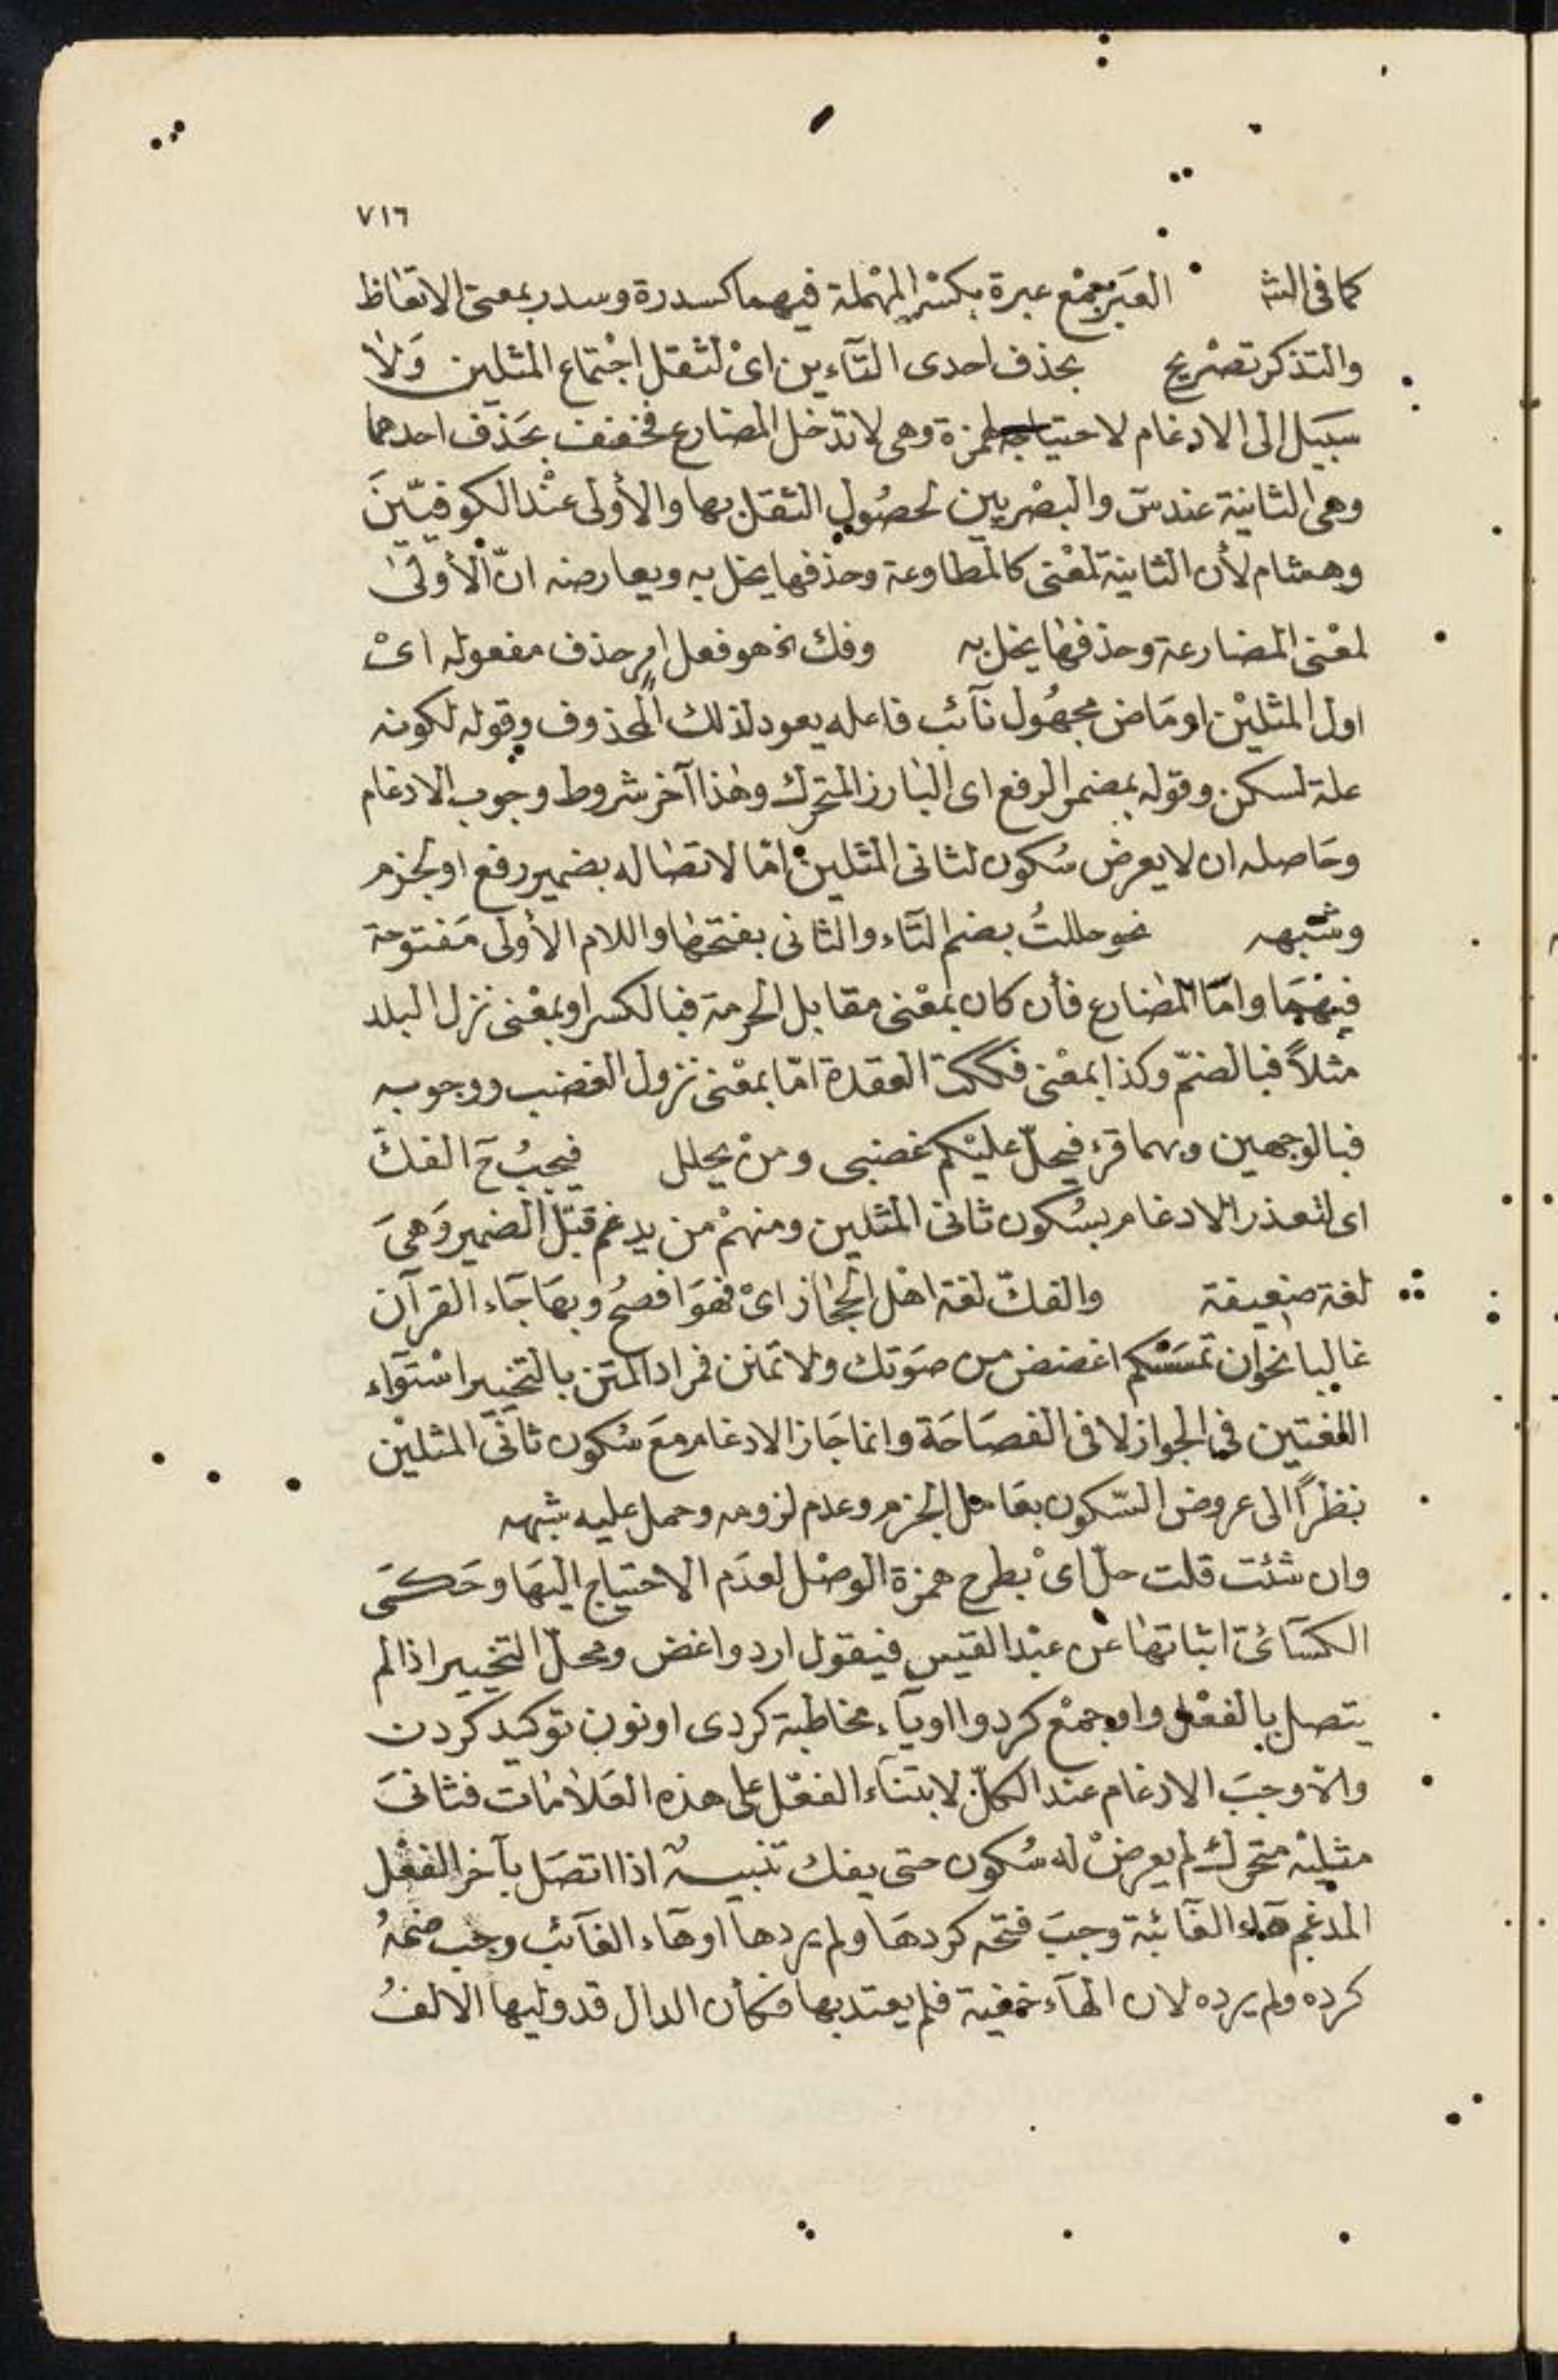 ٧١٦
كما فى الشه العبر جمع عبرة بكسر المهملة فيهما كسدرة وسدر بمعنى الاتعاظ
والتذكر تصريح بحذف احدى التآءين اىْ لثقل اجْتماع المثلين وَلا
سبيل الى الادغام لاحتياجه لهمزة وهى لا تدخل المضارع فخفف بحَذف احدهما
وهى الثانية عند س والبصْريين لحصُول الثقل بها والأولى عنْد الكوفيّينَ
وهشام لأن الثانية لمعْنى كالمطاوعة وحذفها يخل به ويعارضه انّ الأولى
لمعْنى المضارعة وحذفها يخل به وفك الخ هو فعل امر حذف مفعوله اىْ
اول المثليْن او مَاض مجهُول نآئب فاعله يعود لذلك المحذوف وقوله لكونه
علة لسكن وقوله بمضمر الرفع اى البارز المتحرك وهٰذا آخر شروط وجوب الادغام
وحَاصله ان لا يعرض سُكون لثانى المثلين امّا لاتصاله بضمير رفع او لجزم
وشبهه نحو حللتُ بضم التَآء والثانى بفتحها واللام الأولى مَفتوحة
فيهْمَا وامّا المضارع فأن كان بمعْنى مقابل الحرمة فبالكسر او بمعْنى نزل البلد
مثلاً فبالضمّ وكذا بمعْنى فككت العقدة امّا بمعْنى نزول الغضب ووجوبه
فبالوجهين وبهما قرئ فيحلّ عليْكم غضبى ومنْ يحلل فيجبُ حَ الفكّ
اى لتعذر الادغام بسُكون ثانى المثلين ومنهمْ من يدغم قبْل الضمير وَهىَ
لغة ضعيفة والفكّ لغة اهْل الحجٰاز اىْ فهوَ افصحُ وبهَا جَآء القرآن
غالبا نحو ان تمسَسْكم اغضض من صَوتك ولا تمنن فمراد المتن بالتخيير اسْتوآء
اللغتين فى الجواز لا فى الفصَاحَة وانما جَاز الادغام مَعَ سُكون ثانى المثليْن
نظراً الى عروض السّكون بعَامل الجزم وعدم لزومه وحمل عليه شبهه
وان شئت قلت حلّ اىْ بطرح همزة الوصْل لعدَم الاحتياج اليْهَا وحَكى
الكسَآئى اثباتها عن عبْد القيس فيقول ارد واغض ومحلّ التخيير اذا لم
يتصل بالفعْل واو جمْع كردوا او يآء مخاطبة كردى او نون توكيد كردن
والا وجبَ الادغام عند الكلّ لابتنآء الفعْل على هذه العَلامات فثانىَ
مثليْه متحرك لم يعرضْ له سُكون حتى يفك تنبيه اذا اتصَل بآخر الفعْل
المدغم هَاء الغآئبة وجبَ فتحه كردهَا ولم يردها او هآء الغآئب وجب ضمهُ
كرده ولم يرده لان الهآء خفية فلم يعتد بها فكأن الدال قد وليها الالفُ